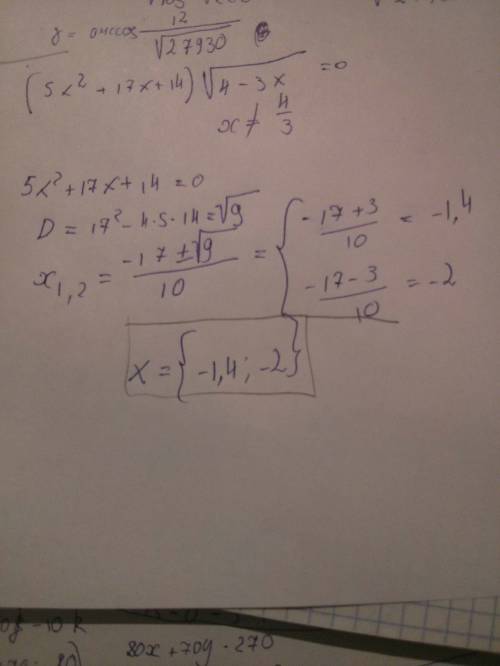 y = arccos 12/√27930
(5x² + 17x + 14) √4 - 3x = 0
x ≠ 4/3
5x² + 17x + 14 = 0
D = 17² - 4·5·14 = √9
x1,2 = -17 ± √9 / 10 = { -17 + 3 / 10 = -1,4
-17 - 3 / 10 = -2
X = {-1,4 ; -2}
80x + 70y · 270